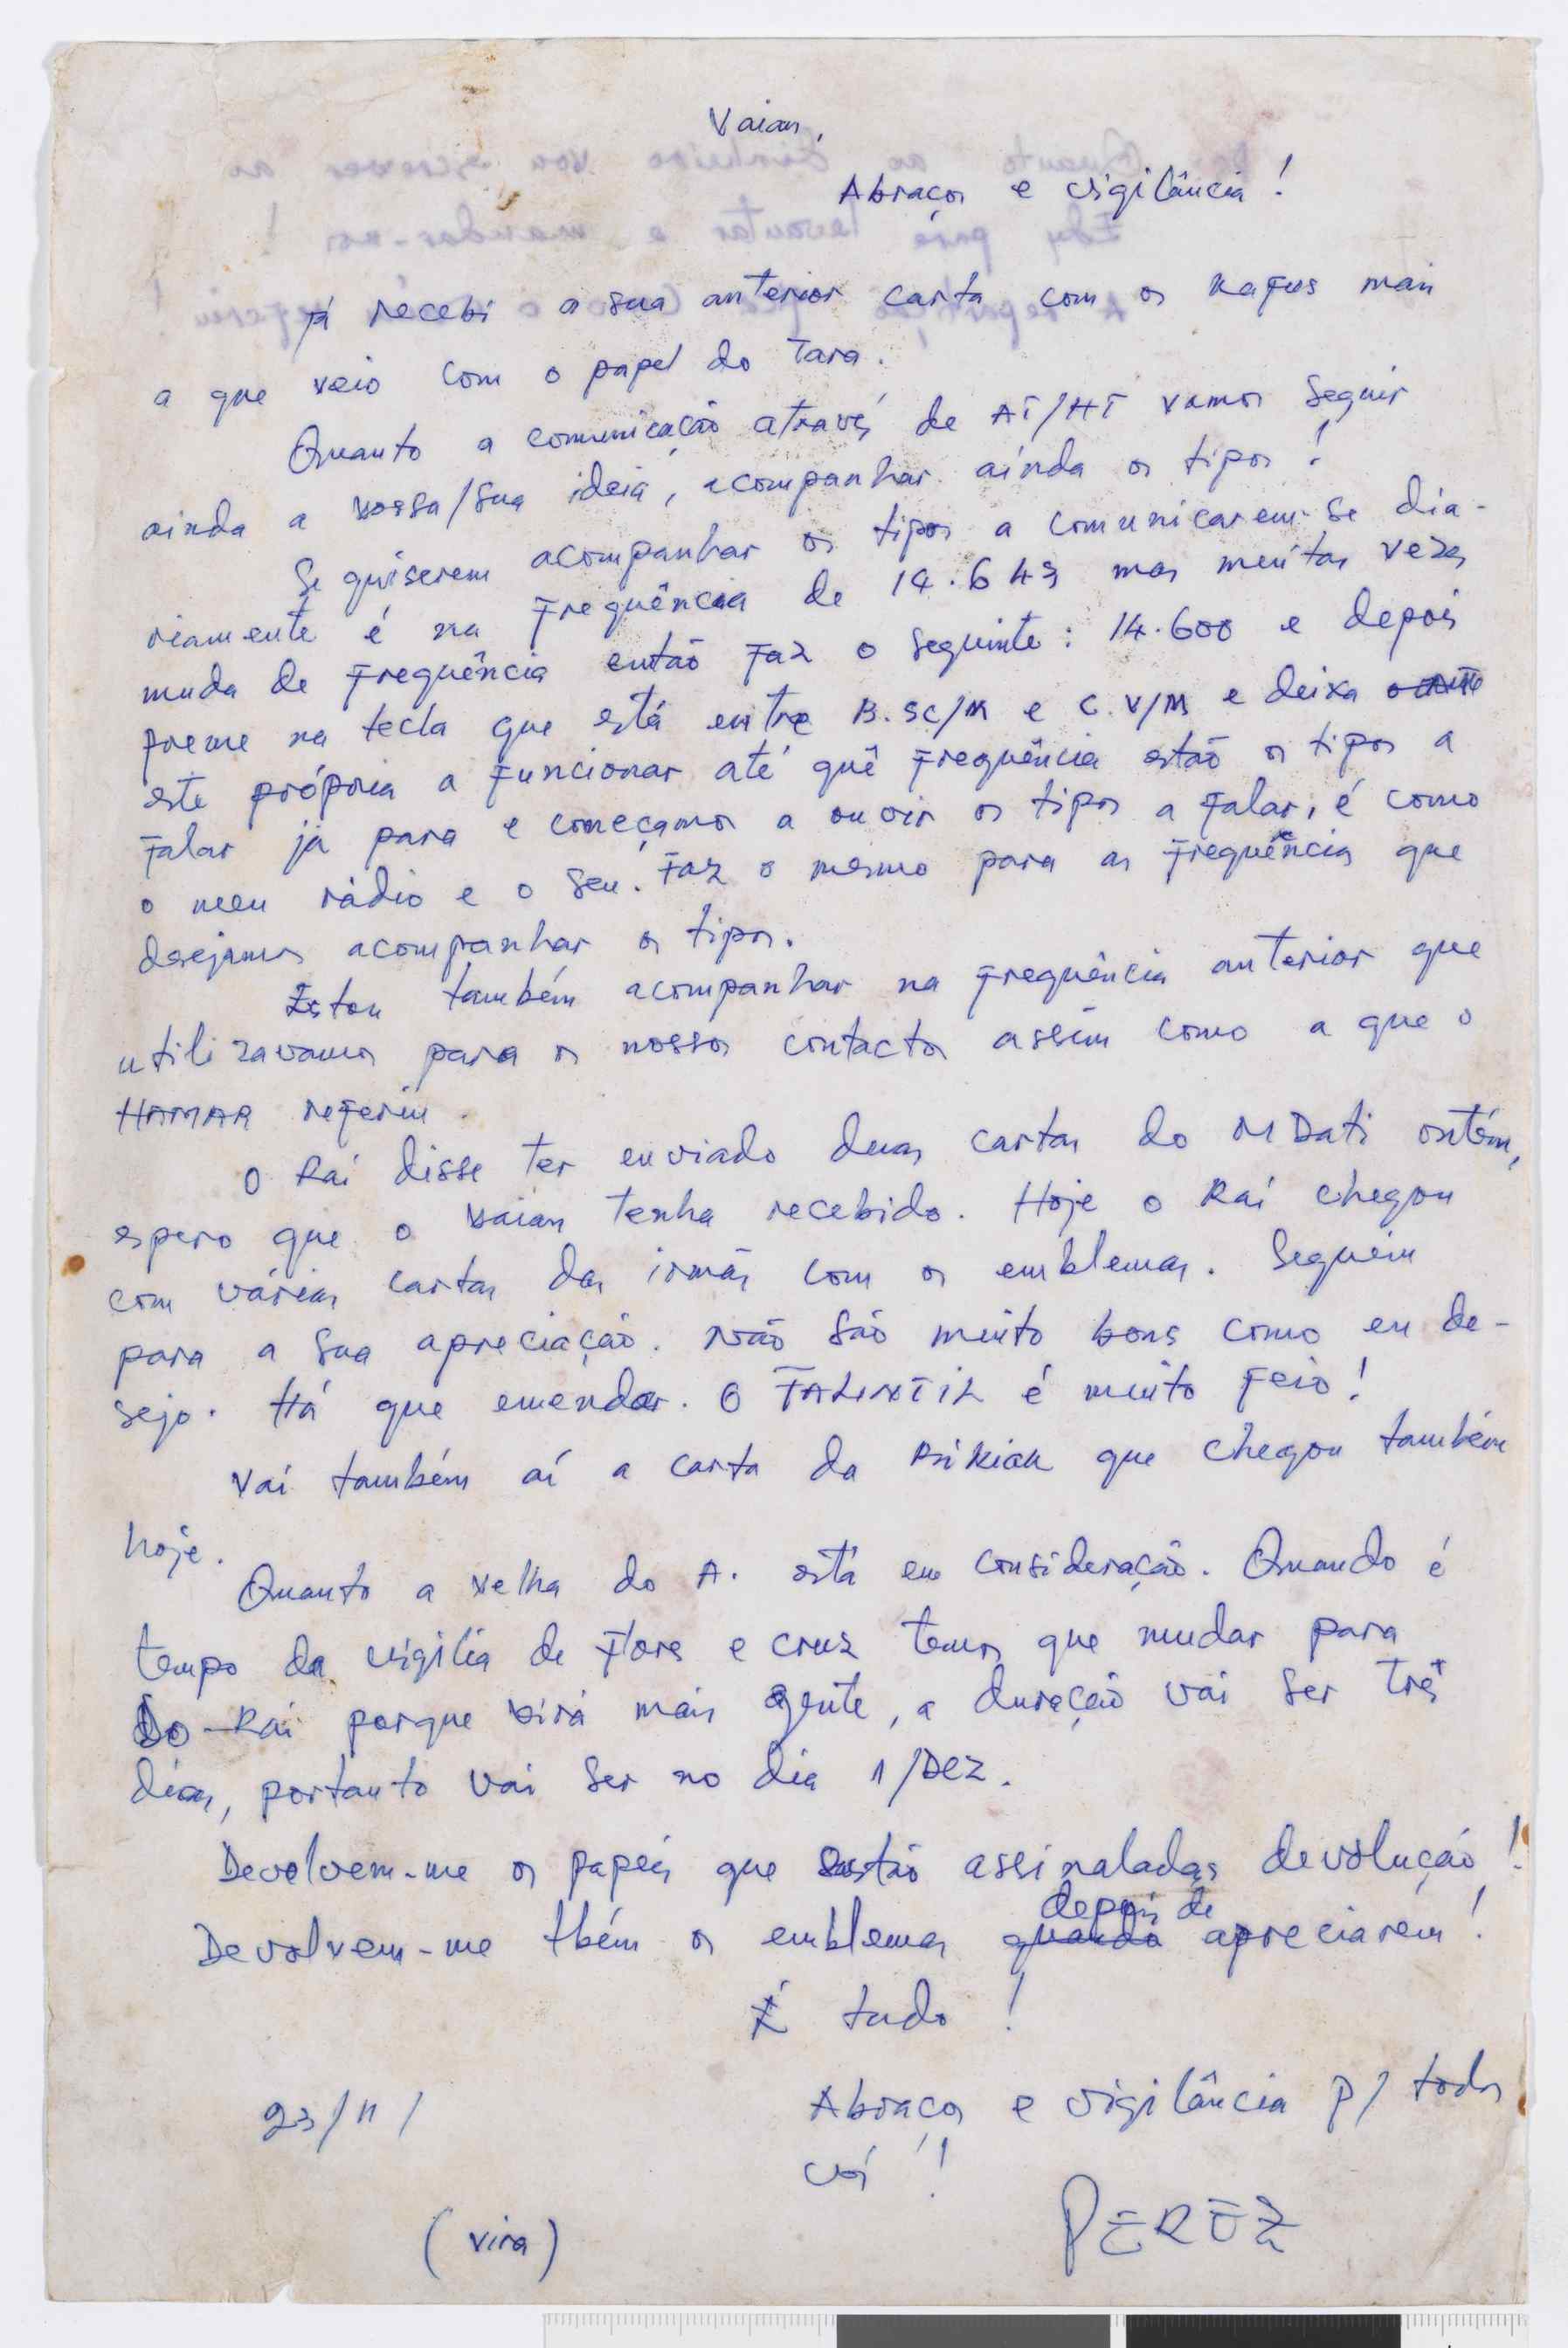 Vaian,
Abraços e vigilância!
Já recebi a sua anterior carta com os kafus mais
a que veio com o papel do Tara.
Quanto a comunicação através de AT/HT vamos seguir
ainda a vossa/sua ideia, acompanhar ainda os tipos!
Se quiserem acompanhar os tipos a comunicarem-se dia-
riamente é na frequência de 14.643 mas muitas vezes
muda de frequência então faz o seguinte: 14.600 e depois
preme na tecla que está entre B.SC/M e C.V/M e deixa
este própria a funcionar até quê frequência estão os tipos a
falar já para e começamos a ouvir os tipos a falar, é como
o meu rádio e o seu. Faz o mesmo para as frequências que
desejamos acompanhar os tipos.
Estou também acompanhar na frequência anterior que
utilizavamos para os nossos contactos assim como a que o
HAMAR referiu.
O Rai disse ter enviado duas cartas do M Dati ontém,
espero que o Vaian tenha recebido. Hoje o Rai chegou
com várias cartas das irmãs com os emblemas. Seguém
para a sua apreciação. Não são muito bons como eu de-
sejo. Há que emendar. O FALINTIL é muito feio!
Vai também aí a carta da que chegou também
hoje.
Quanto a velha do A. está em consideração. Quando é
tempo da vigília de Flore e cruz temos que mudar para
Do-Rai porque virá mais gente, a duração vai ser três
dias, portanto vai ser no dia 1/DEZ.
Devolvem-me os papéis que estão assinaladas devolução!
Devolvem-me tbém os emblemas quando depois de apreciarem!
É tudo!
23/11/
Abraços e vigilância p/ todos
vós!
(vira)
PEREZ